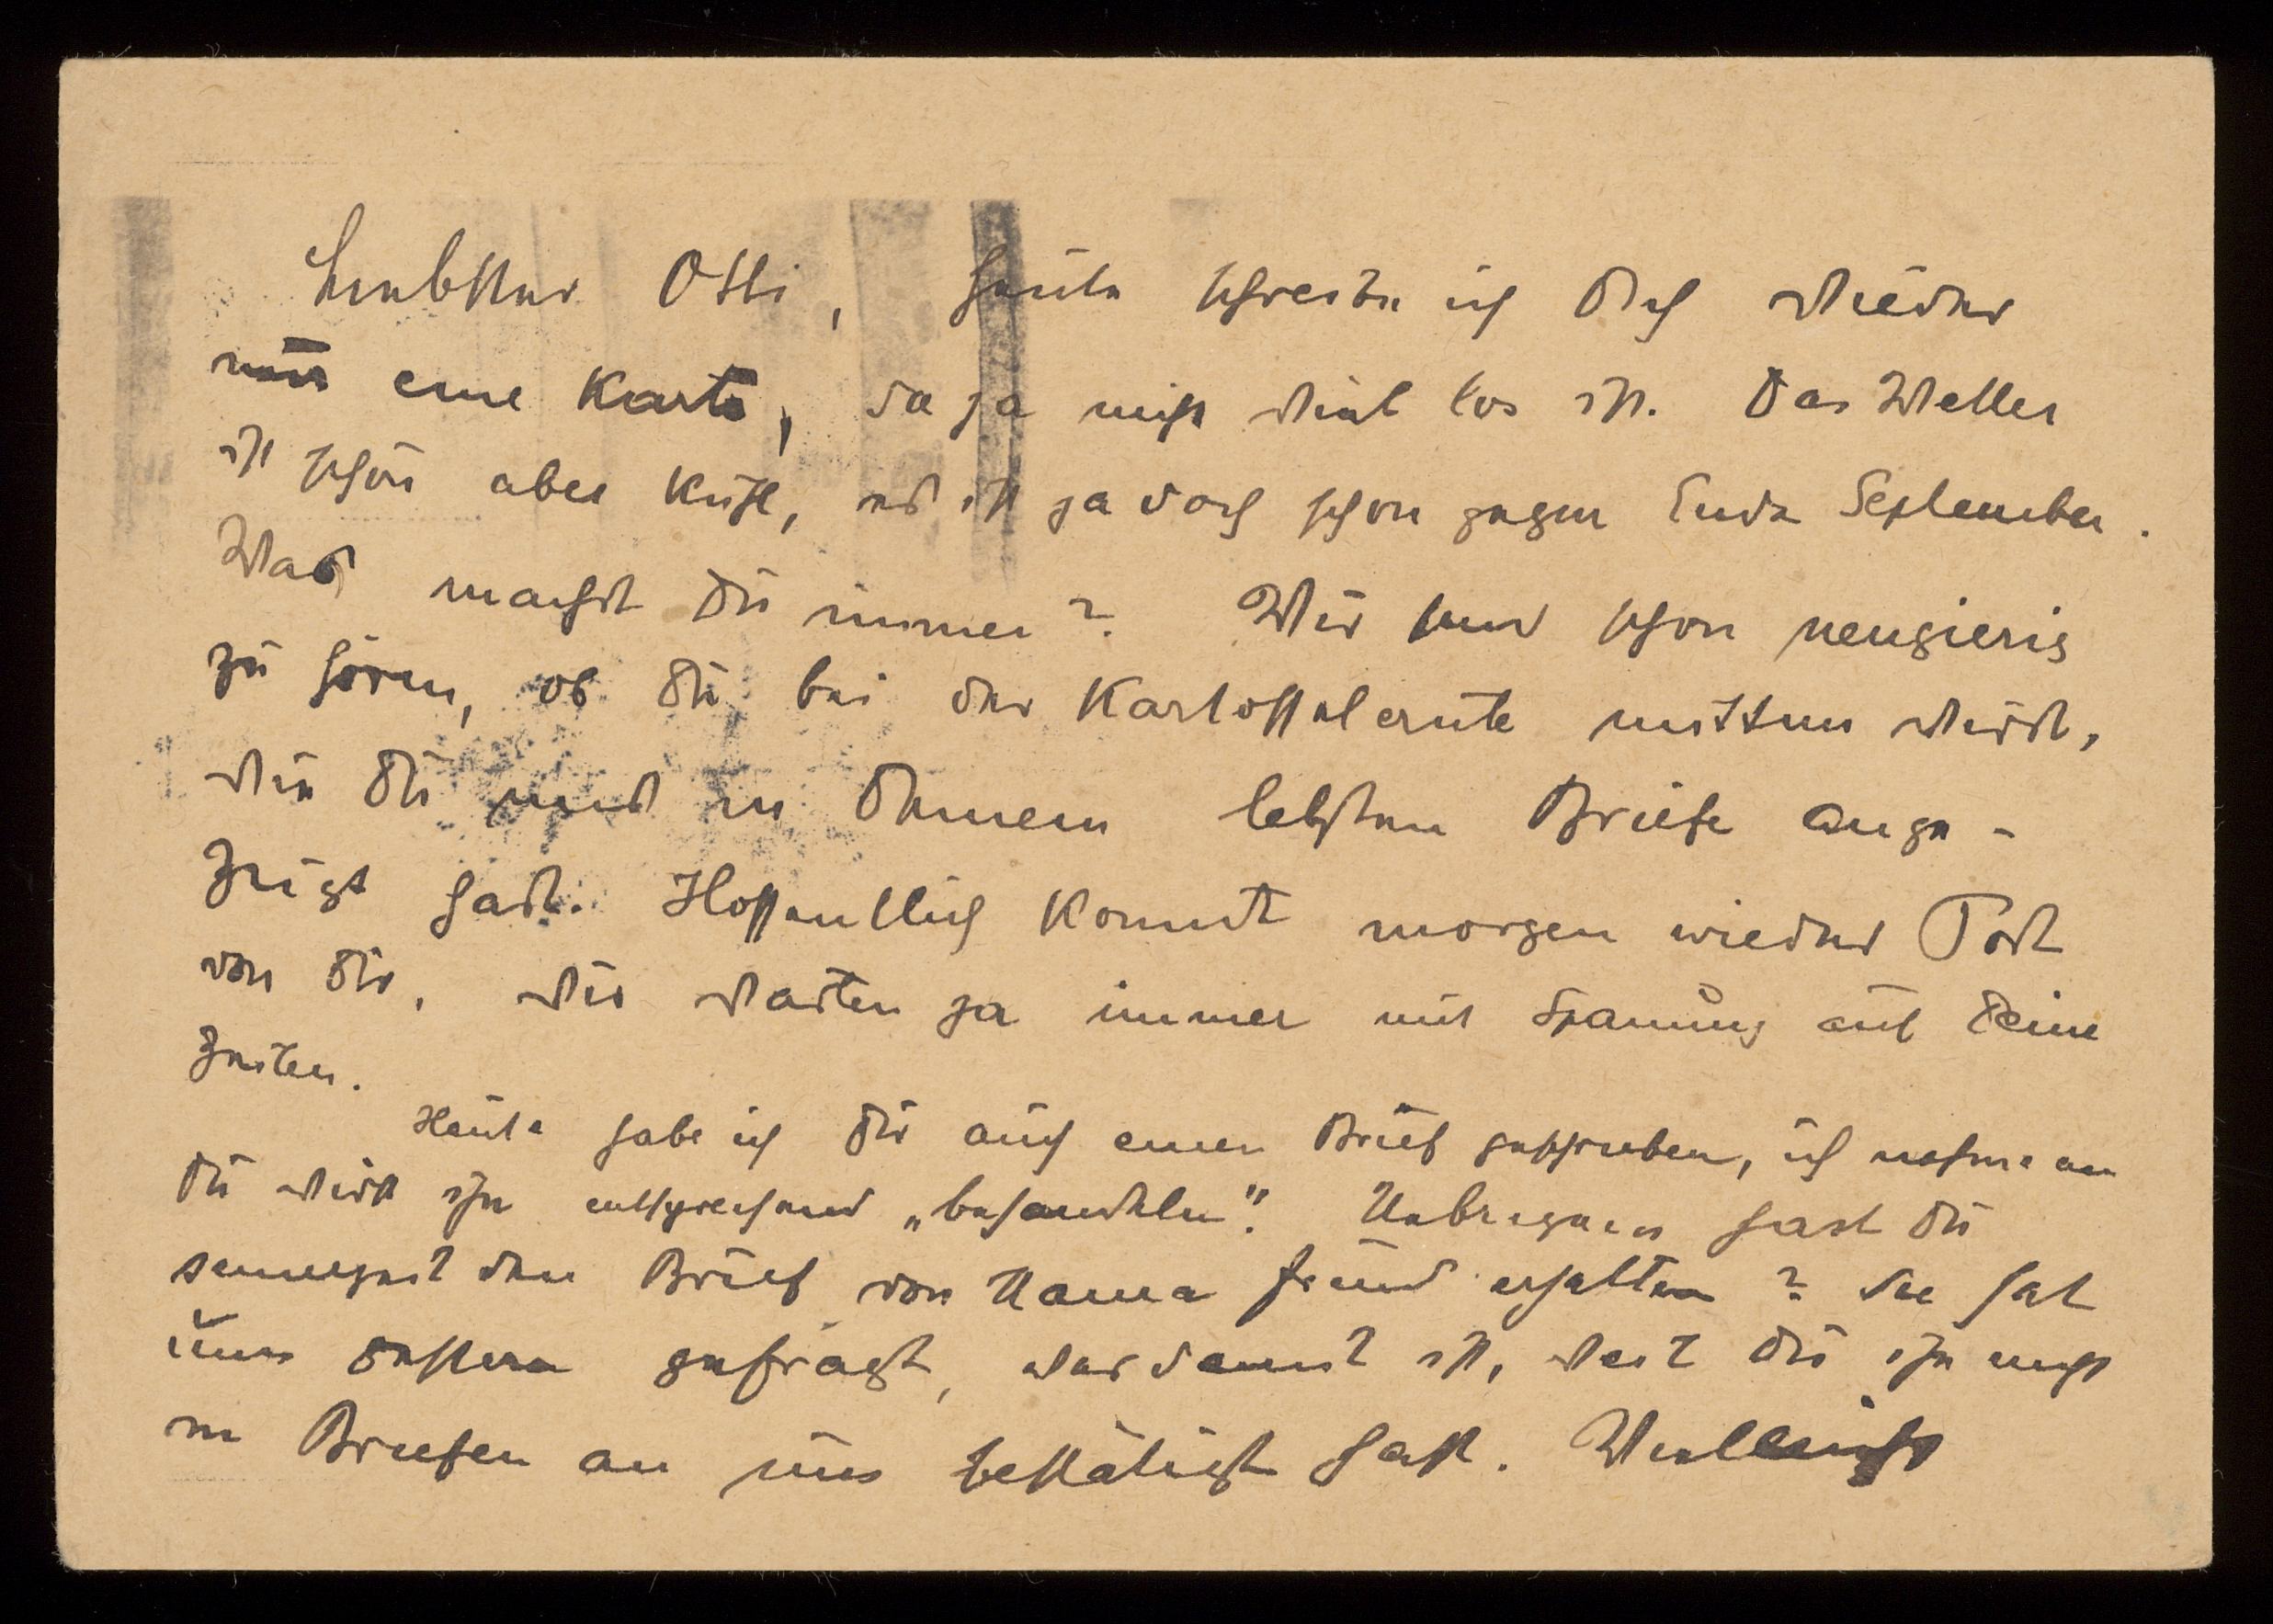 Liebster Otti, heute schreibe ich Dir wieder
nur eine Karte, da ja nicht viel los ist. Das Wetter
ist schön aber kühl, es ist ja doch schon gegen Ende September.
Was machst Du immer? Wir sind schon neugierig
zu hören, ob Du bei der Kartoffelernte mittun wirst,
wie Du uns in Deinem letzten Briefe ange-
zeigt hast. Hoffentlich kommt morgen wieder Post
von Dir, wir warten ja immer mit Spannung auf Deine
Zeilen.
Heute habe ich Dir auch einen Brief geschrieben, ich nehme an
Du wirst ihn entsprechend „behandeln“. Uebrigens hast Du
seinerzeit den Brief von Mama Freund erhalten? Sie hat
uns öfters gefragt, was damit ist, weil Du ihn nicht
in Briefen an uns bestätigt hast. Vielleicht